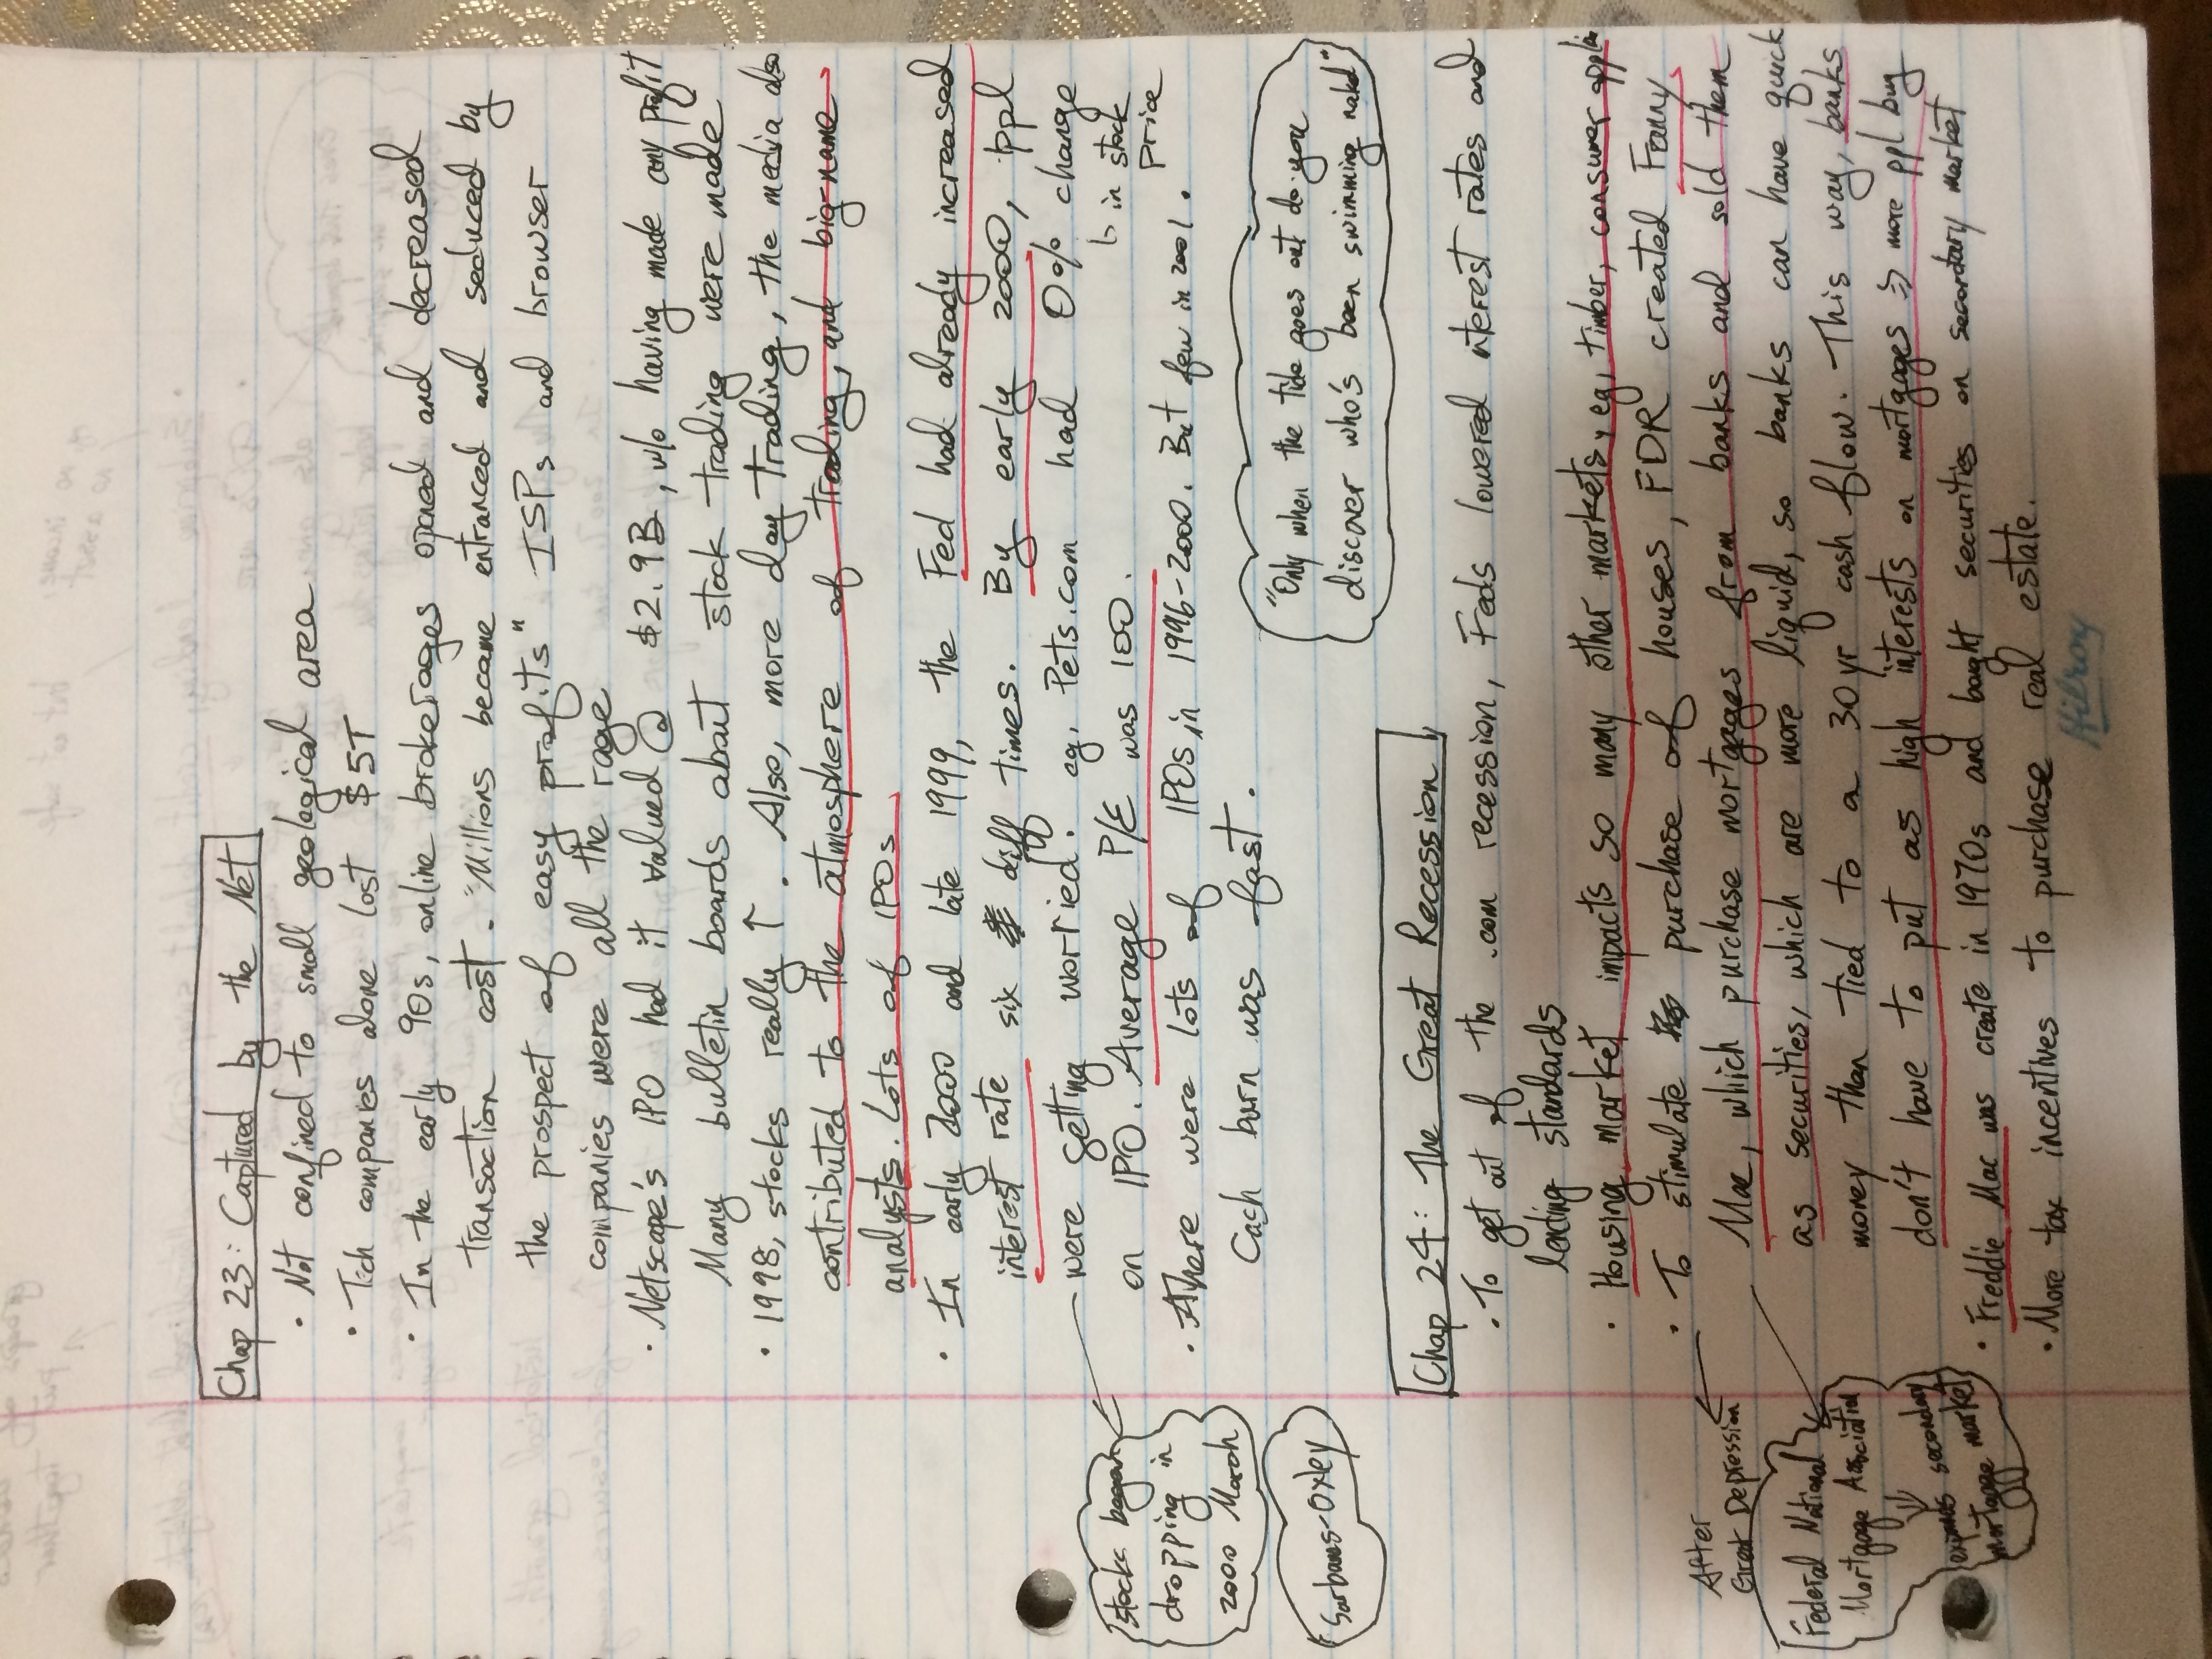 Chap 23: Captured by the Net
• Not confined to small geological area
• Tech companies alone lost $5T
• In the early 90s, online brokerages opened and decreased
transaction cost. "Millions became entranced and seduced by
the prospect of easy profits" ISPs and browser
companies were all the rage
• Netscape's IPO had it valued @ $2.9B, w/o having made any profit
Many bulletin boards about stock trading were made
• 1998, stocks really ↑. Also, more day trading, the media also
contributed to the atmosphere of trading, and big-name
analysts. Lots of IPOs
• In early 2000 and late 1999, the Fed had already increased
interest rate six diff times. By early 2000, ppl
were getting worried. eg, Pets.com had 0% change
↳ in stock
price
on IPO. Average P/E was 100.
stocks began
dropping in
2000 March
• There were lots of IPOs in 1996-2000. But few in 2001.
Cash burn was fast.
Sarbanes-Oxley
"Only when the tide goes out do you
discover who's been swimming naked"
Chap 24: The Great Recession
• To get out of the .com recession, Feds lowered interest rates and
lending standards
• Housing market impacts so many other markets, eg, timber, consumer
• To stimulate purchase of houses, FDR created Fanny
Mae, which purchase mortgages from banks and sold them
as securities, which are more liquid, so banks can have quick
money than tied to a 30yr cash flow. This way, banks
don't have to put as high interests on mortgages ⇒ more ppl buy
After
Great Depression
Federal National
Mortgage Association
expands secondary
mortgage market
• Freddie Mac was create in 1970s and bought securities on secordary market
• More tax incentives to purchase real estate.
Hilroy